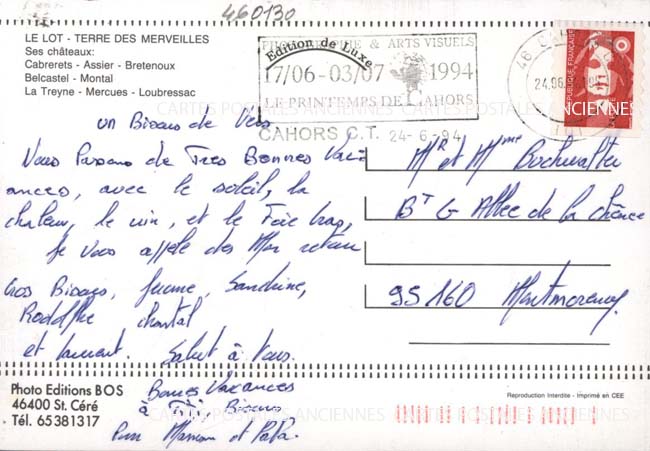 460130
LE LOT - TERRE DES MERVEILLES
Ses châteaux:
Cabrerets - Assier - Bretenoux
Belcastel - Montal
La Treyne - Mercues - Loubressac
Edition de Luxe
& ARTS VISUELS
17/06-03/07 1994
LE PRINTEMPS DE CAHORS
CAHORS C.T. 24-6-94
46
24.06
REPUBLIQUE FRANÇAISE
CARTES POSTALES ANCIENNES CARTES POSTALES ANCIENNES
un Bisous de Vers
Vous Passons de Tres Bonnes Vac
ances, avec le soleil, la
chaleur, le vin, et le Foie Gras,
Je Vous appelle des Mon retour
Gros Bisous, Sandrine,
Rodolphe chantal
et Laurent. Salut à Vous.
Bonnes Vacances
à Bisous
Pour Maman et Papa.
Mr et Mme
Bt G Allee de la chênée
95160 Montmorency
Photo Editions BOS
46400 St. Céré
Tél. 65381317
Reproduction Interdite - Imprimé en CEE
CARTES POSTALES ANCIENNES CARTES POSTALES ANCIENNES